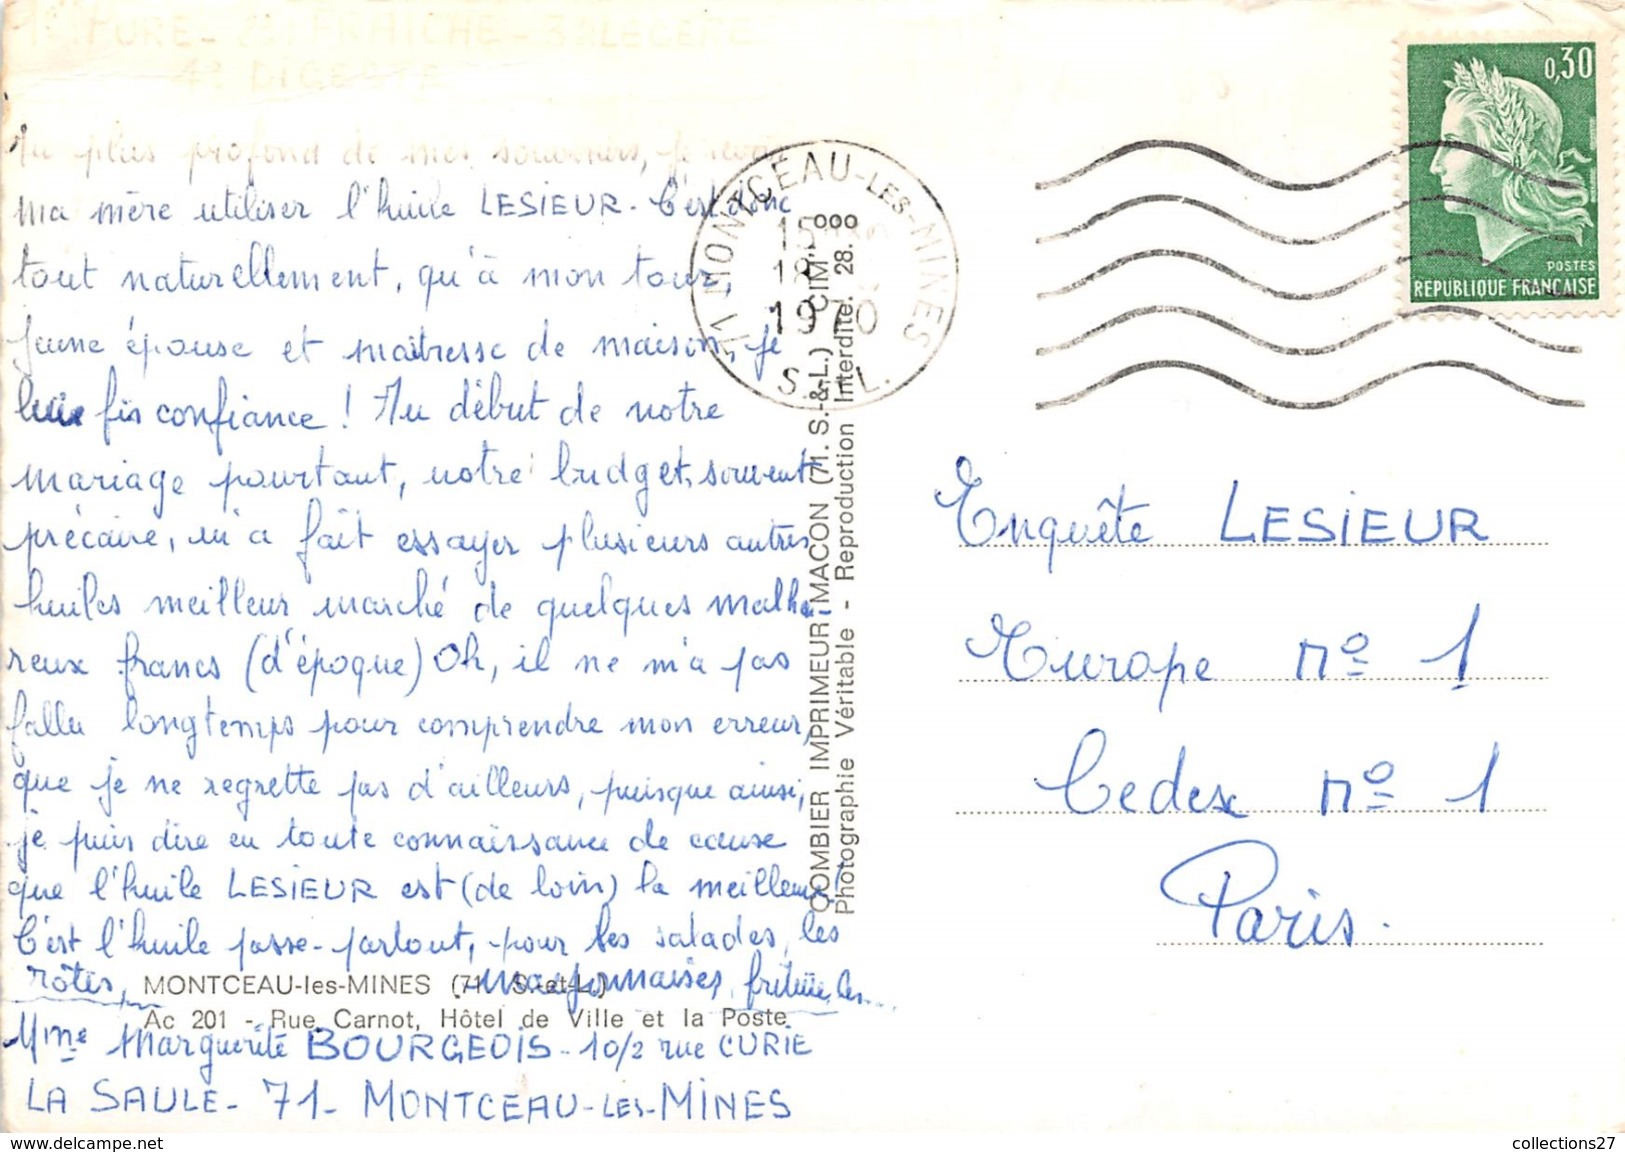 1° PURE - 2° FRAICHE - 3° LEGERE
4° DIGESTE
Au plus profond de mes souvenirs, je revois
ma mère utiliser l'huile LESIEUR. C'est donc
tout naturellement, qu'à mon tour,
jeune épouse et maîtresse de maison, je
lui fis confiance ! Au début de notre
mariage pourtant, notre budget, souvent
précaire, m'a fait essayer plusieurs autres
huiles meilleur marché de quelques malheu-
reux francs (d'époque) Oh, il ne m'a pas
fallu longtemps pour comprendre mon erreur,
que je ne regrette pas d'ailleurs, puisque ainsi,
je puis dire en toute connaissance de cause
que l'huile LESIEUR est (de loin) la meilleure!
C'est l'huile passe-partout, pour les salades, les
rôtis, mayonnaises, friture, etc...
MONTCEAU-les-MINES (71. S.-et-L.)
Ac 201 - Rue Carnot, Hôtel de Ville et la Poste
Mme Marguerite BOURGEOIS - 10/2 rue CURIE
LA SAULE - 71 - MONTCEAU-LES-MINES
COMBIER IMPRIMEUR MACON (71. S.-&-L.) CIM
Photographie Véritable - Reproduction Interdite. 28.000
71 MONTCEAU-LES-MINES
15
18
1970
S.-&-L.
0,30
POSTES
REPUBLIQUE FRANÇAISE
Enquête LESIEUR
Europe n° 1
Cedex n° 1
Paris.
www.delcampe.net
collections27